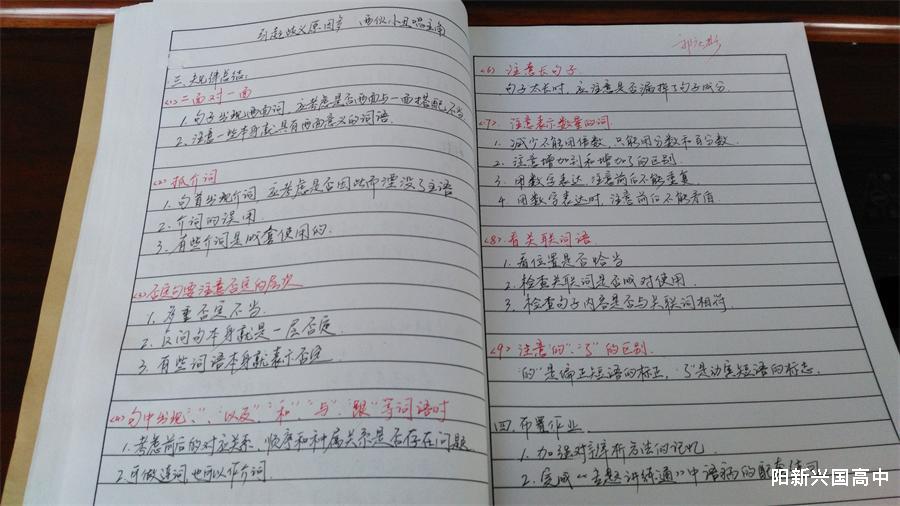 引起歧义原因多 两似小丑唱主角
三、规律总结:
<1>二面对一面
1. 句子出现两面词,应考虑是否两面与一面搭配不当.
2. 注意一些本身就具有两面意义的词语.
<2>抓介词
1. 句首出现介词,应考虑是否因此而湮没了主语
2. 介词的误用
3. 有些介词是成套使用的.
<3>否定句要注意否定的层次
1. 多重否定不当.
2. 反问句本身就是一层否定.
3. 有些词语本身就表示否定
<4>句中出现"、""以及""和""与""跟"等词语时
1. 考虑前后的对应关系、顺序和种属关系是否存在问题
2. 可做连词也可以作介词.
<6> 注意长句子
句子太长时,应注意是否漏掉了句子成分.
<7>. 注意表示数量的词.
1. 减少不能用倍数,只能用分数和百分数.
2. 注意增加到和增加了的区别.
3. 用数字表达,注意前后不能重复.
4. 用数字表达时,注意前后不能矛盾.
<8>有关联词语.
1. 看位置是否恰当
2. 检查关联词是否成对使用.
3. 检查句子内容是否与关联词相符.
<9> 注意"的"、"了"的区别.
"的"是偏正短语的标志,"了"是动宾短语的标志.
四. 布置作业.
1. 加强对辨析方法的记忆
2. 完成《专题讲练通》中语病的配套练习
阳新兴国高中